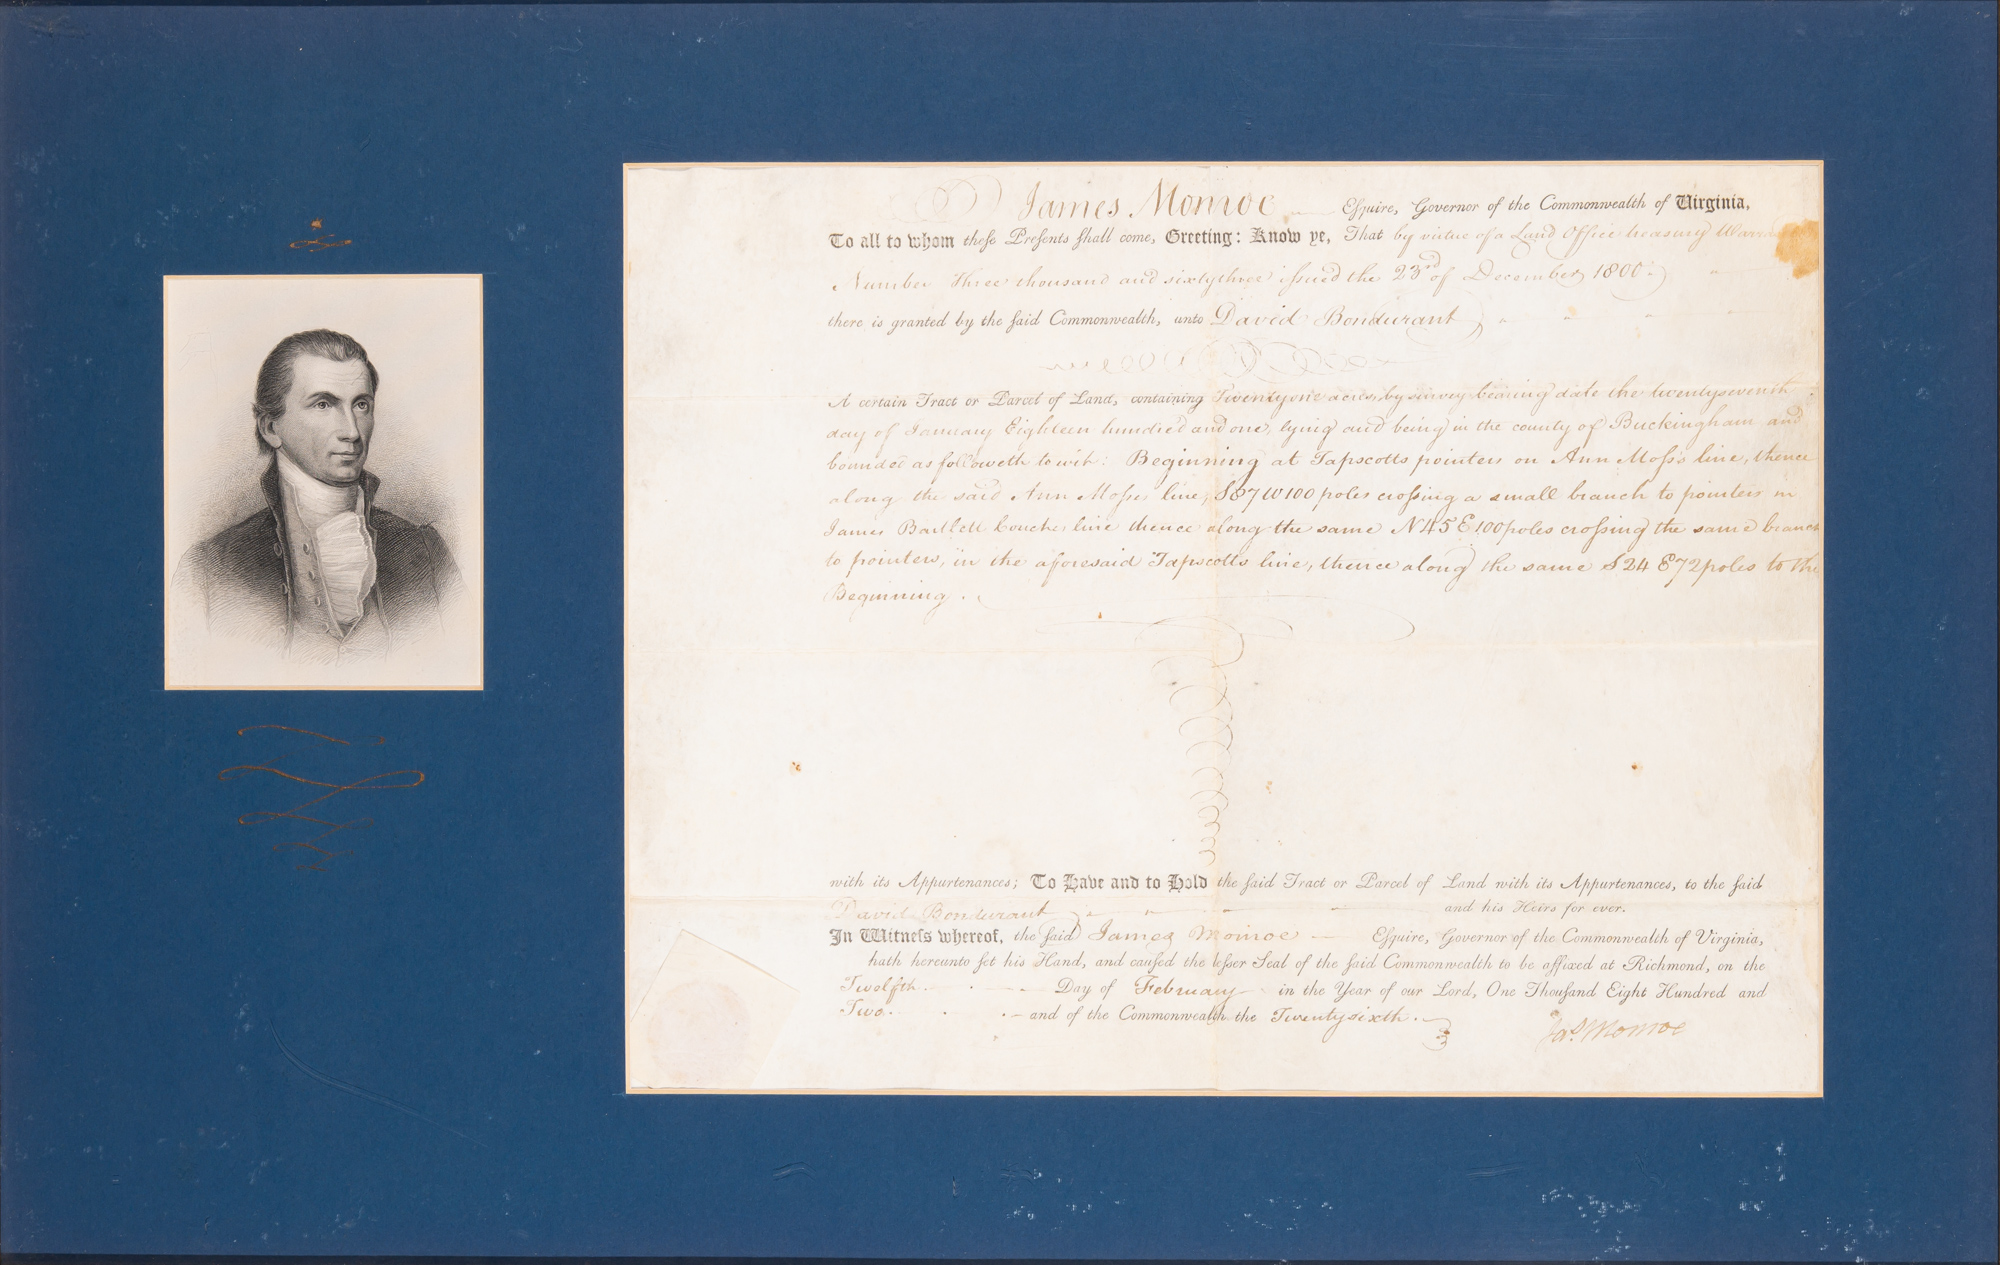 James Monroe Esquire, Governor of the Commonwealth of Virginia,
To all to whom these Presents shall come, Greeting: Know ye, That by virtue of a Land Office treasury
Number Three thousand and sixtythree issued the 23rd of December 1800
there is granted by the said Commonwealth, unto David Bondurant
A certain Tract or Parcel of Land, containing Twentyone acres, by survey bearing date the twentyseventh
day of January Eighteen hundred and one, lying and being in the county of Buckingham and
bounded as followeth to wit: Beginning at Tapscotts pointers on Ann Moss's line, thence
along the said Ann Mosses line, S87W100 poles crossing a small branch to pointers in
James Bartlett line thence along the same N45E100poles crossing the same branch
to pointers, in the aforesaid Tapscotts line, thence along the same S24 E72poles to the
Beginning.
with its Appurtenances; To Have and to Hold the said Tract or Parcel of Land with its Appurtenances, to the said
David Bondurant and his Heirs for ever.
In Witness whereof, the said James Monroe Esquire, Governor of the Commonwealth of Virginia,
hath hereunto set his Hand, and caused the lesser Seal of the said Commonwealth to be affixed at Richmond, on the
Twelfth Day of February in the Year of our Lord, One Thousand Eight Hundred and
Two and of the Commonwealth the Twentysixth.
Jas. Monroe